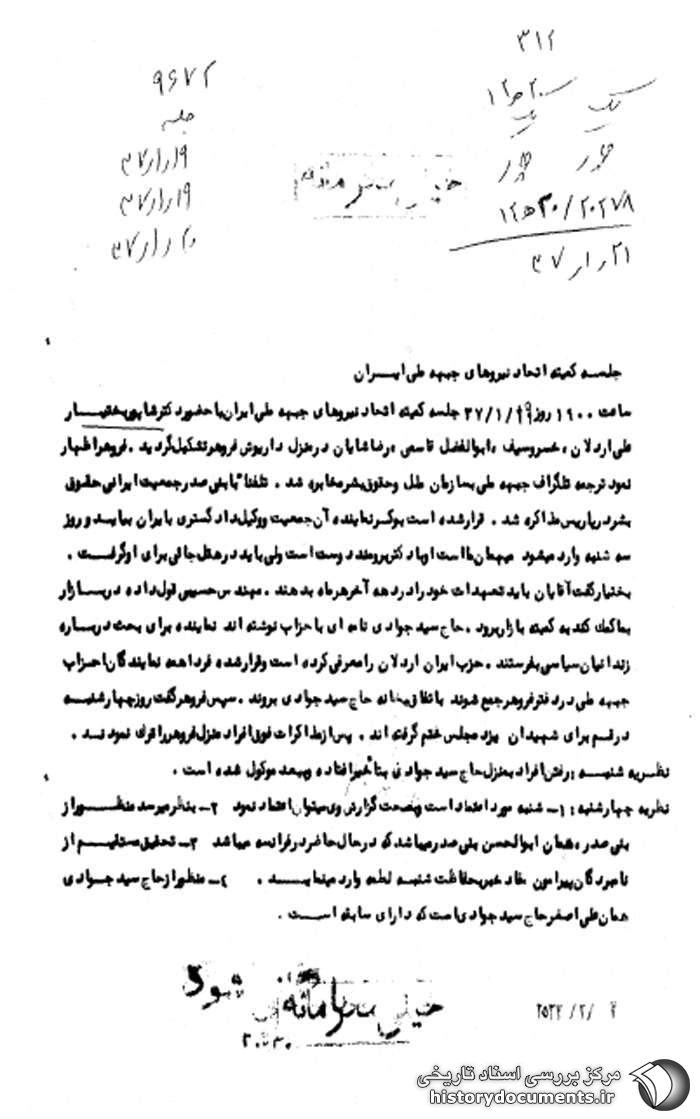 ۳۱۲
۲۰ ه ۱۲
۲۰۲۷۸ / ۳۰ ه ۱۲
۲۱ ر ۱ ر ۳۷
۹۶۷۲
جلسه
۱۹ ر ۱ ر ۳۷
۱۹ ر ۱ ر ۳۷
۲۰ ر ۱ ر ۳۷
خیلی محرمانه
جلسه کمیته اتحاد نیروهای جبهه ملی ایران
ساعت ۱۹۰۰ روز ۳۷/۱/۱۹ جلسه کمیته اتحاد نیروهای جبهه ملی ایران با حضور دکتر شاپور بختیار
علی اردلان ، خسرو سیف ، ابوالفضل قاسمی ، رضا شایان در منزل داریوش فروهر تشکیل گردید . فروهر اظهار
نمود ترجمه تلگراف جبهه ملی بسازمان ملل و حقوق بشر مخابره شد . تلفنا" با بنی صدر جمعیت ایرانی حقوق
بشر در پاریس مذاکره شد . قرار شده است نماینده آن جمعیت و وکیل دادگستری با ایران بیاید و روز
سه شنبه وارد میشود میهمان ما است او با دکتر برومند دوست است ولی باید در هتل جائی برای او گرفت .
بختیار گفت آقایان باید تعهدات خود را در دهه آخر هر ماه بدهند . مهندس حسیبی قول داده در بازار
بما کمک کند به کمیته بازار برود . حاج سید جوادی نامه ای با حزاب نوشته اند نماینده برای بحث درباره
زندانیان سیاسی بفرستند . حزب ایران اردلان را معرفی کرده است و قرار شده فردا همه نمایندگان احزاب
جبهه ملی در دفتر فروهر جمع شوند باتفاق بخانه حاج سید جوادی بروند . سپس فروهر گفت روز چهارشنبه
در قم برای شهیدان یزد مجلس ختم گرفته اند . پس از مذاکرات فوق افراد منزل فروهر را ترک نمودند .
نظریه شنبه : رفتن افراد بمنزل حاج سید جوادی بتأخیر افتاده و ببعد موکول شده است .
نظریه چهارشنبه : ۱- شنبه مورد اعتماد است و بصحت گزارش وی میتوان اعتماد نمود ۲- بنظر میرسد منظور از
بنی صدر ، همان ابوالحسن بنی صدر میباشد که در حال حاضر در فرانسه میباشد ۳- تحقیق مستقیم از
نامبردگان پیرامون مفاد خبر بحفاظت شنبه لطمه وارد مینماید . ۴- منظور از حاج سید جوادی
همان علی اصغر حاج سید جوادی است که دارای سابقه است .
خیلی محرمانه
شود
۲۵۳۷/۲/۴
مرکز بررسی اسناد تاریخی
historydocuments.ir